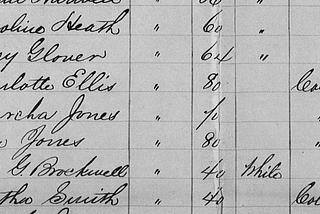 oline Heath " 60 "
y Glover " 64 "
rlotte Ellis " 80 Co
rcha Jones " 70 "
Jones " 80 "
G. Brockwell " 40 While
tha Smith " 40 Col